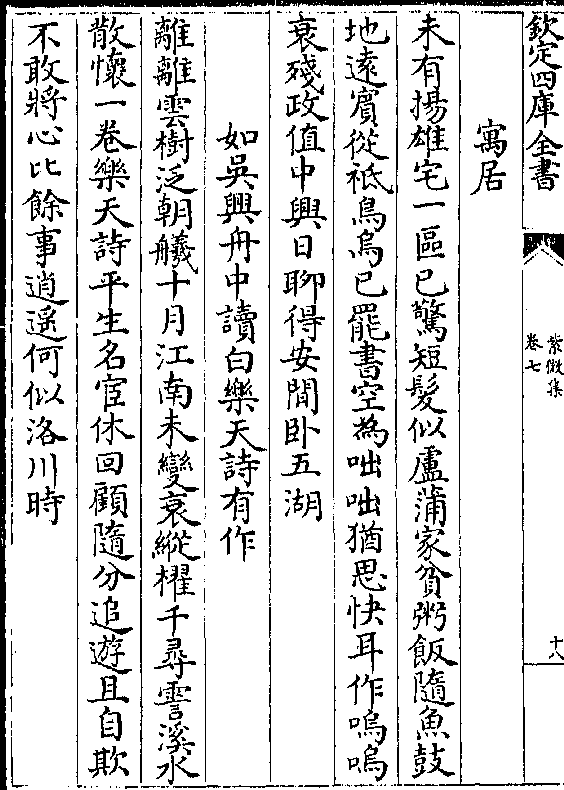 欽定四庫全書
紫微集
卷七
十八
寓居
未有揚雄宅一區已驚短髮似盧蒲家貧粥飯隨魚鼓
地逺賓從祗烏烏已罷書空為咄咄猶思快耳作嗚嗚
衰殘政值中興日聊得安閒卧五湖
如吳興舟中讀白樂天詩有作
離離雲樹泛朝艤十月江南未變衰縱櫂千尋霅溪水
散懷一卷樂天詩平生名宦休回顧隨分追遊且自欺
不敢將心比餘事逍遥何似洛川時